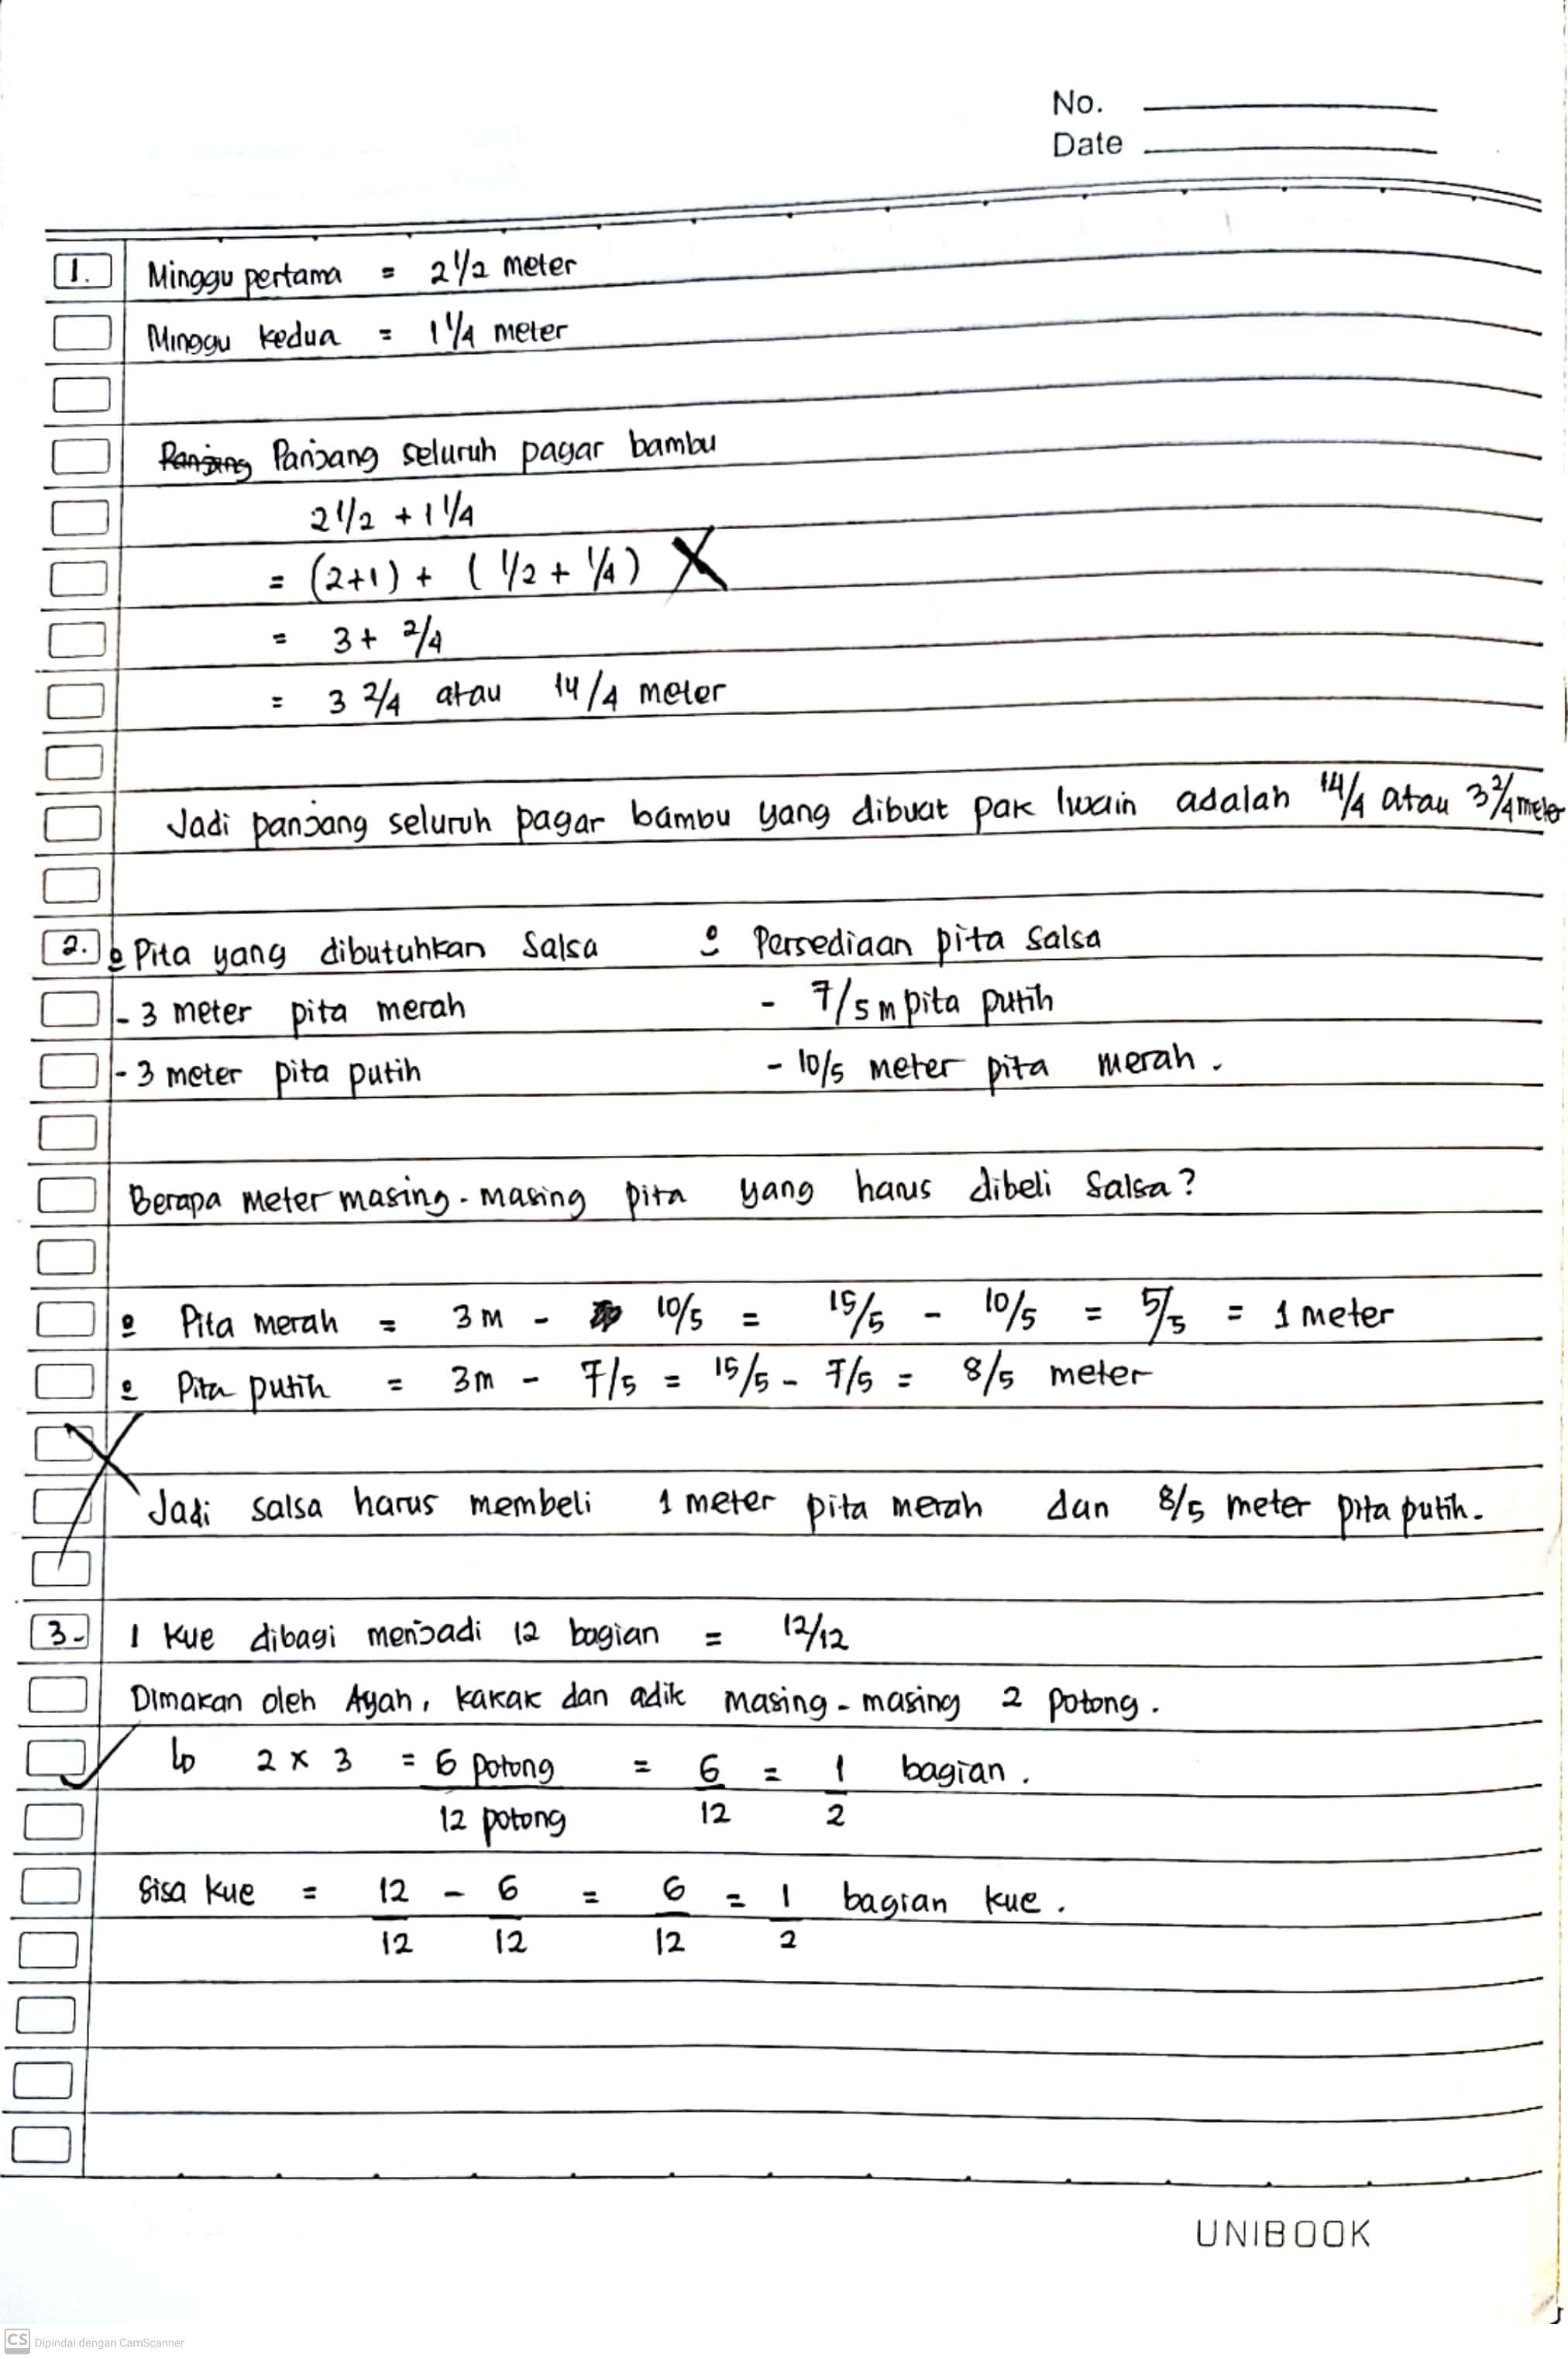 No.
Date
1. Minggu pertama = 2 1/2 meter
Minggu kedua = 1 1/4 meter
Panjang Panjang seluruh pagar bambu
2 1/2 + 1 1/4
= (2+1) + ( 1/2 + 1/4 ) X
= 3 + 2/4
= 3 2/4 atau 14/4 meter
Jadi panjang seluruh pagar bambu yang dibuat pak Iwain adalah 14/4 atau 3 2/4 meter
2. Pita yang dibutuhkan Salsa
- 3 meter pita merah
- 3 meter pita putih
Persediaan pita Salsa
- 7/5 m pita putih
- 10/5 meter pita merah.
Berapa meter masing-masing pita yang harus dibeli Salsa?
Pita merah = 3 m - 10/5 = 15/5 - 10/5 = 5/5 = 1 meter
Pita putih = 3m - 7/5 = 15/5 - 7/5 = 8/5 meter
Jadi salsa harus membeli 1 meter pita merah dan 8/5 meter pita putih.
3. 1 kue dibagi menjadi 12 bagian = 12/12
Dimakan oleh Ayah, kakak dan adik masing-masing 2 potong.
↳ 2 x 3 = 6 potong/12 potong = 6/12 = 1/2 bagian.
Sisa kue = 12/12 - 6/12 = 6/12 = 1/2 bagian kue.
UNIBOOK
CS Dipindai dengan CamScanner